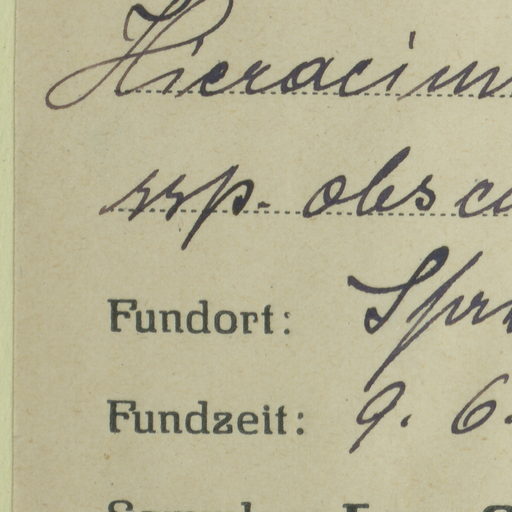 Hieracium
ssp. obsc
Fundort: Spr
Fundzeit: 9. 6.